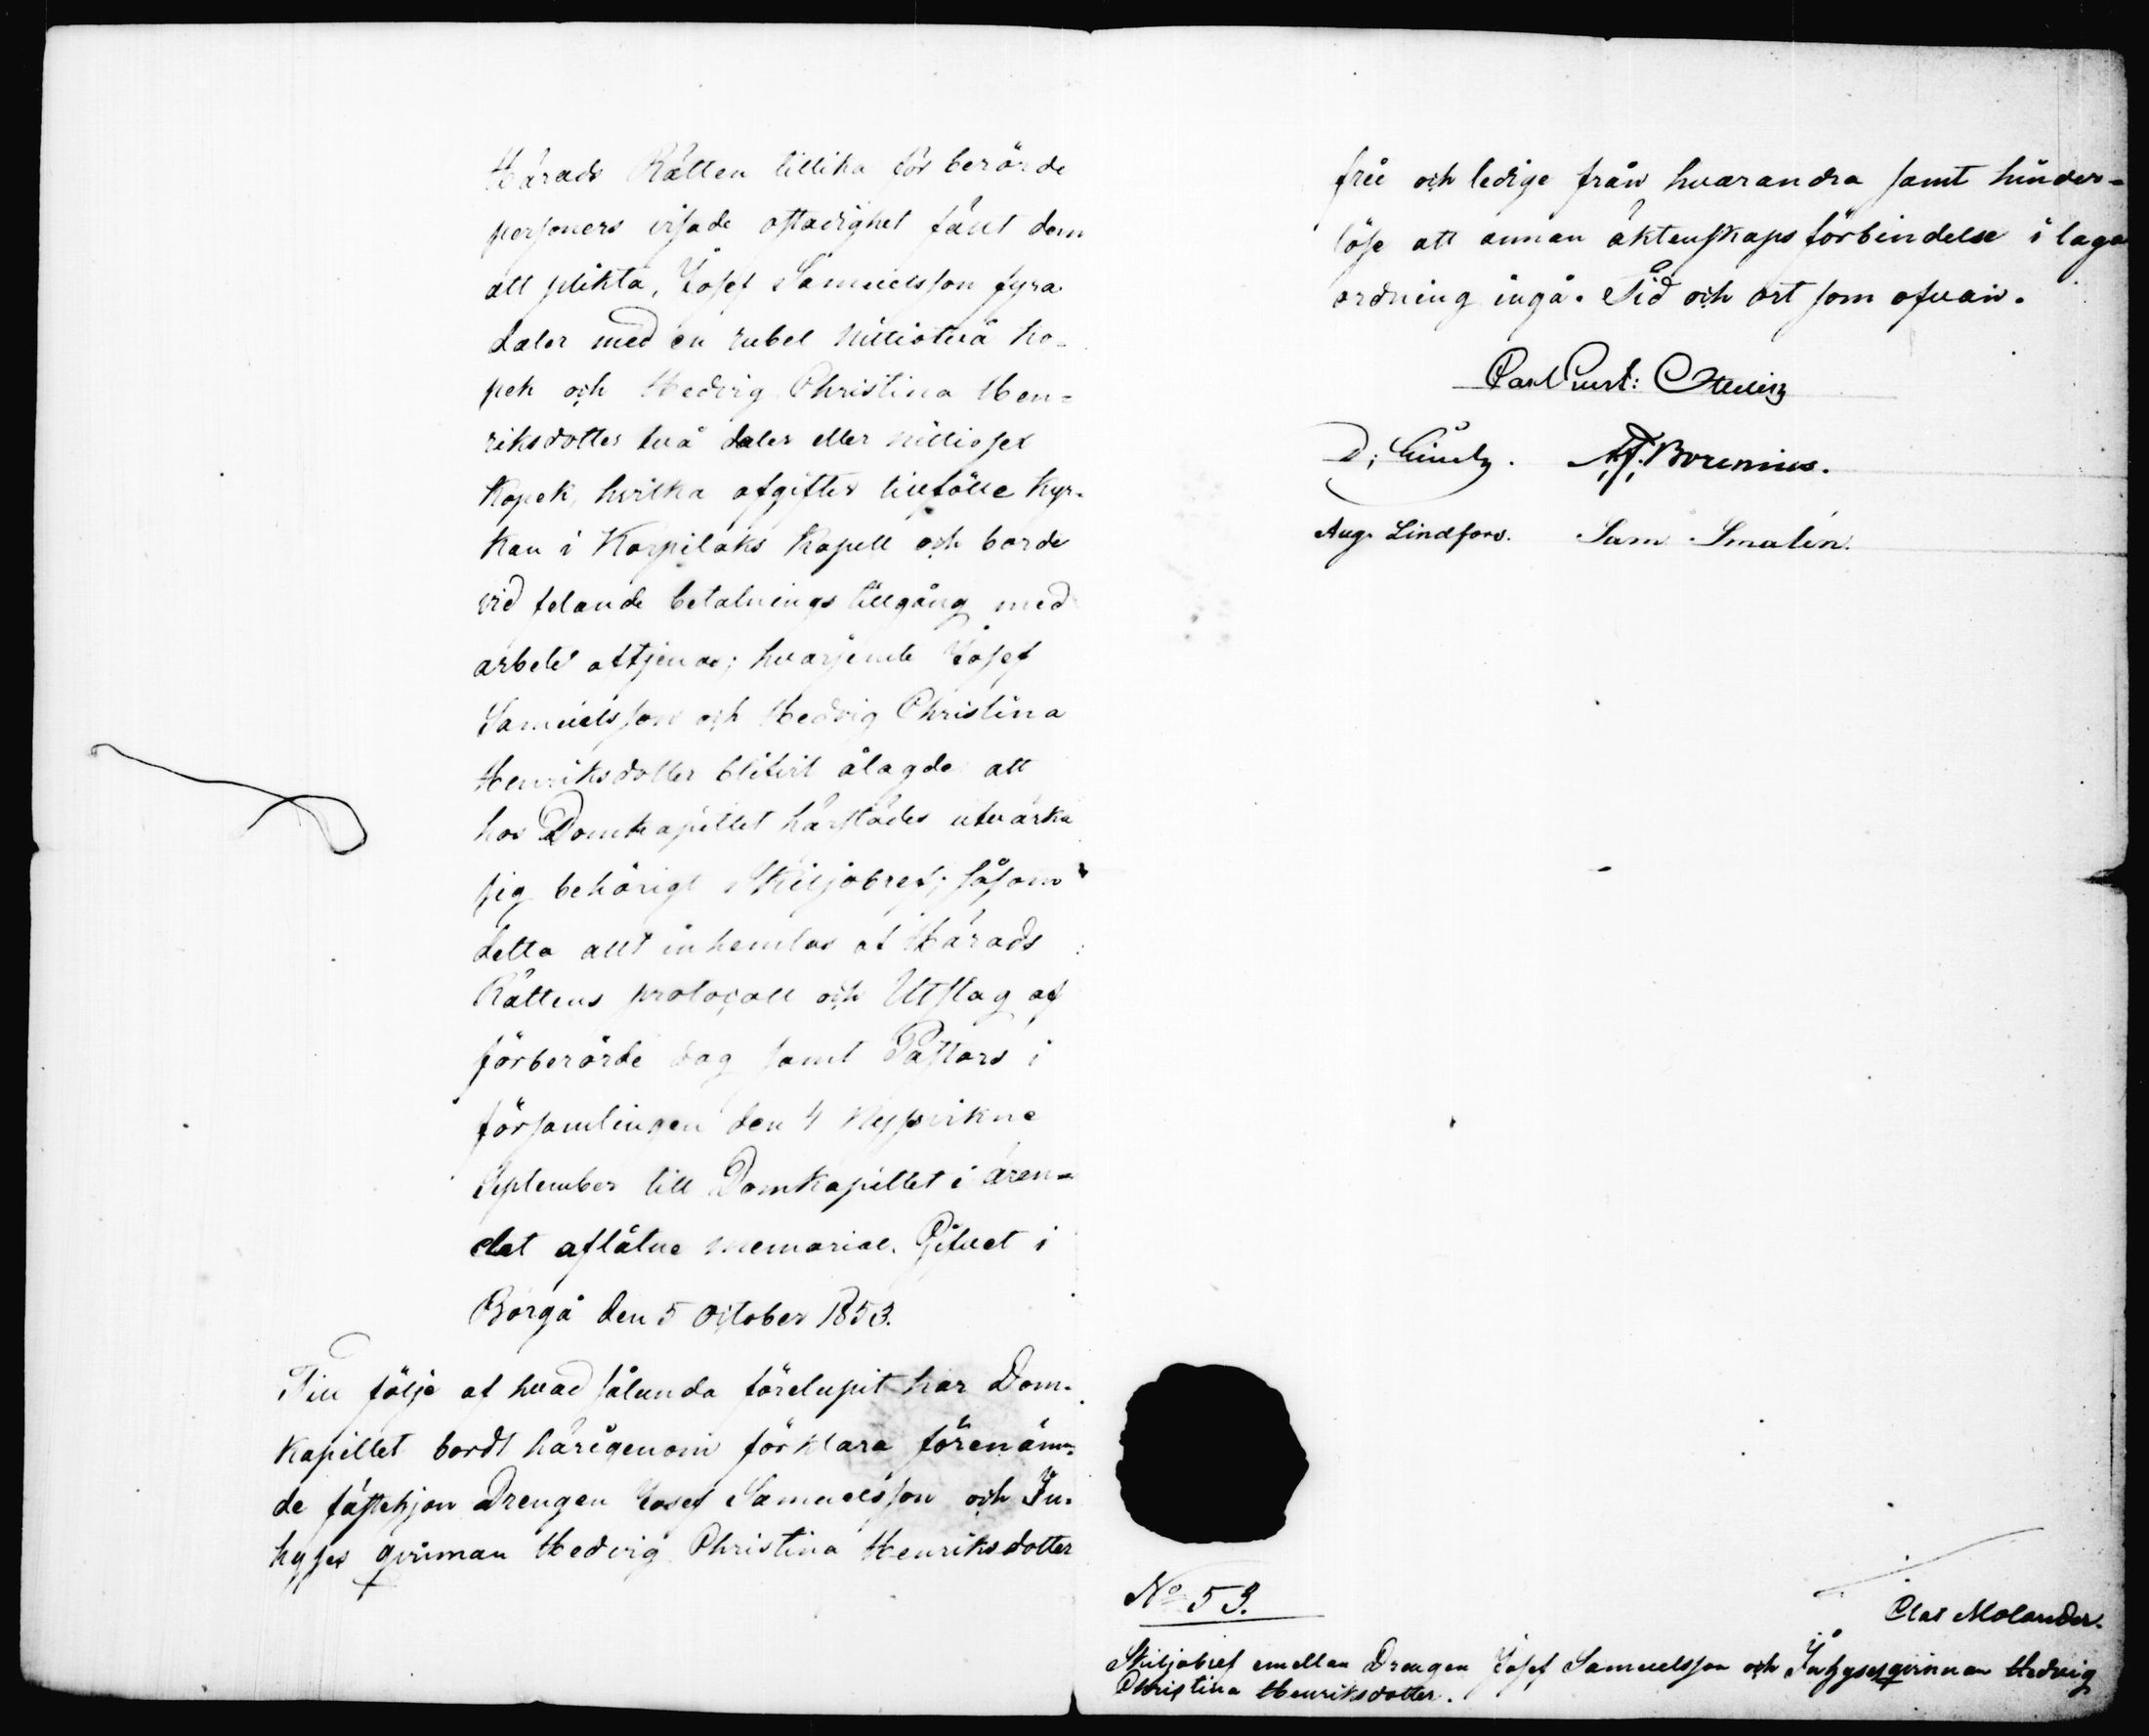 Härads Rätten tillika för berörde
personers visade ostadighet fällt dem
att plikta, Josef Samuelsson fyra
daler med en rubel nittiotvå ko-
pek och Hedvig Christina Hen-
riksdotter två daler eller nittiosex
Kopek, hvilka afgifter tillfölle Kyr-
kan i Korpilaks Kapell och borde
vid felande betalnings tillgång med
arbete aftjenas; hvarjemte Josef
Samuelsson och Hedvig Christina
Henriksdotter blifvit ålagde att
hos Domkapitlet härstädes utverka
sig behörigt Skiljobref; såsom
detta allt inhemtas af Härads
Rättens protocoll och Utslag af
förberörde dag samt Pastors i
församlingen den 4 nysvikne
September till Domkapitlet i ären-
det aflåtne memorial. Gifvet i
Borgå den 5 October 1853.
Till följe af hvad sålunda förelupit har Dom-
kapitlet bordt härigenom förklara förenäm-
de fästehjon Drengen Josef Samuelsson och In-
hyses qvinnan Hedvig Christina Henriksdotter
frie och ledige från hvarandra samt hinder-
löse att annan äktenskaps förbindelse i laga
ordning ingå. Tid och ort som ofvan.
Carl Gust: Ottelin
A. J. Borenius.
Aug. Lindfors. Sam Smalén.
No 53.
Clas Molander.
Skiljobref emellan Drengen Josef Samuelsson och Inhysesqvinnan Hedvig
Christina Henriksdotter.